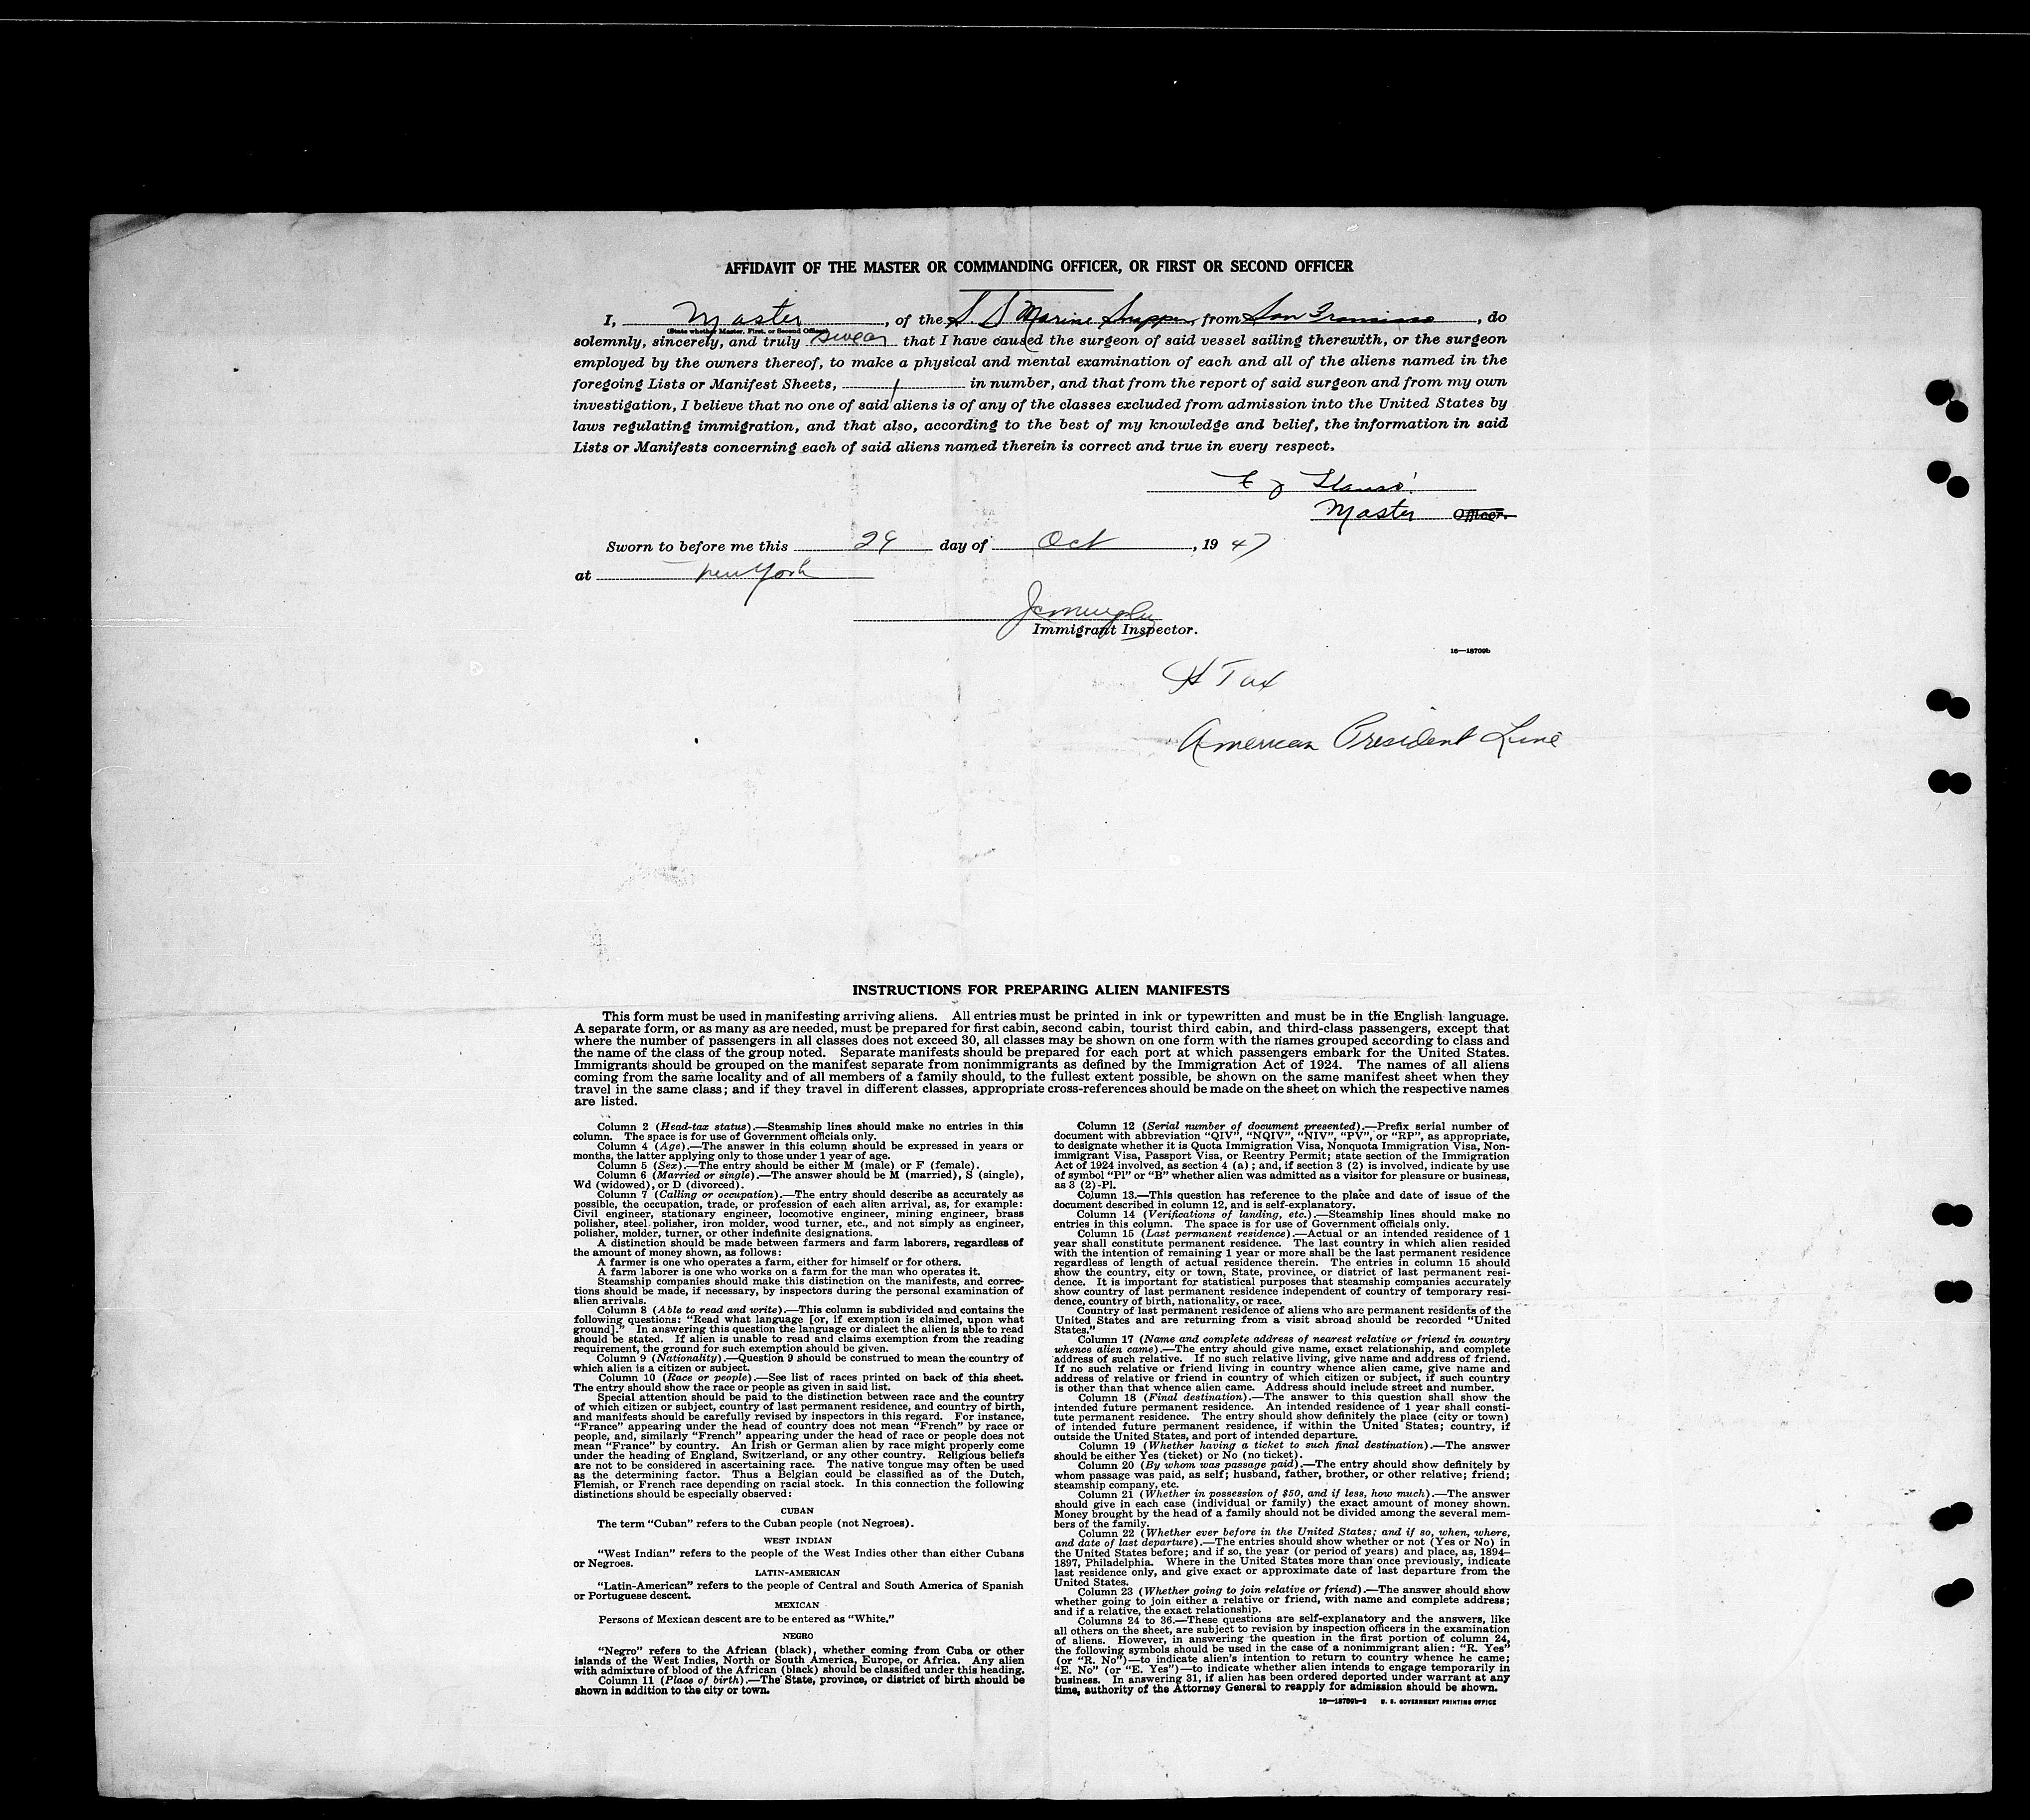 AFFIDAVIT OF THE MASTER OR COMMANDING OFFICER, OR FIRST OR SECOND OFFICER
I, Master, of the S S Marine Snapper, from San Francisco, do
(State whether Master, First, or Second Officer)
solemnly, sincerely, and truly swear that I have caused the surgeon of said vessel sailing therewith, or the surgeon
employed by the owners thereof, to make a physical and mental examination of each and all of the aliens named in the
foregoing Lists or Manifest Sheets, 1 in number, and that from the report of said surgeon and from my own
investigation, I believe that no one of said aliens is of any of the classes excluded from admission into the United States by
laws regulating immigration, and that also, according to the best of my knowledge and belief, the information in said
Lists or Manifests concerning each of said aliens named therein is correct and true in every respect.
Master Officer.
Sworn to before me this 29 day of Oct, 19 47
at New York
Immigrant Inspector.
16—18709b
H Tax
American President Line
INSTRUCTIONS FOR PREPARING ALIEN MANIFESTS
This form must be used in manifesting arriving aliens. All entries must be printed in ink or typewritten and must be in the English language.
A separate form, or as many as are needed, must be prepared for first cabin, second cabin, tourist third cabin, and third-class passengers, except that
where the number of passengers in all classes does not exceed 30, all classes may be shown on one form with the names grouped according to class and
the name of the class of the group noted. Separate manifests should be prepared for each port at which passengers embark for the United States.
Immigrants should be grouped on the manifest separate from nonimmigrants as defined by the Immigration Act of 1924. The names of all aliens
coming from the same locality and of all members of a family should, to the fullest extent possible, be shown on the same manifest sheet when they
travel in the same class; and if they travel in different classes, appropriate cross-references should be made on the sheet on which the respective names
are listed.
Column 2 (Head-tax status).—Steamship lines should make no entries in this
column. The space is for use of Government officials only.
Column 4 (Age).—The answer in this column should be expressed in years or
months, the latter applying only to those under 1 year of age.
Column 5 (Sex).—The entry should be either M (male) or F (female).
Column 6 (Married or single).—The answer should be M (married), S (single),
Wd (widowed), or D (divorced).
Column 7 (Calling or occupation).—The entry should describe as accurately as
possible, the occupation, trade, or profession of each alien arrival, as, for example:
Civil engineer, stationary engineer, locomotive engineer, mining engineer, brass
polisher, steel polisher, iron molder, wood turner, etc., and not simply as engineer,
polisher, molder, turner, or other indefinite designations.
A distinction should be made between farmers and farm laborers, regardless of
the amount of money shown, as follows:
A farmer is one who operates a farm, either for himself or for others.
A farm laborer is one who works on a farm for the man who operates it.
Steamship companies should make this distinction on the manifests, and correc-
tions should be made, if necessary, by inspectors during the personal examination of
alien arrivals.
Column 8 (Able to read and write).—This column is subdivided and contains the
following questions: "Read what language [or, if exemption is claimed, upon what
ground]." In answering this question the language or dialect the alien is able to read
should be stated. If alien is unable to read and claims exemption from the reading
requirement, the ground for such exemption should be given.
Column 9 (Nationality).—Question 9 should be construed to mean the country of
which alien is a citizen or subject.
Column 10 (Race or people).—See list of races printed on back of this sheet.
The entry should show the race or people as given in said list.
Special attention should be paid to the distinction between race and the country
of which citizen or subject, country of last permanent residence, and country of birth,
and manifests should be carefully revised by inspectors in this regard. For instance,
"France" appearing under the head of country does not mean "French" by race or
people, and, similarly "French" appearing under the head of race or people does not
mean "France" by country. An Irish or German alien by race might properly come
under the heading of England, Switzerland, or any other country. Religious beliefs
are not to be considered in ascertaining race. The native tongue may often be used
as the determining factor. Thus a Belgian could be classified as of the Dutch,
Flemish, or French race depending on racial stock. In this connection the following
distinctions should be especially observed:
CUBAN
The term "Cuban" refers to the Cuban people (not Negroes).
WEST INDIAN
"West Indian" refers to the people of the West Indies other than either Cubans
or Negroes.
LATIN-AMERICAN
"Latin-American" refers to the people of Central and South America of Spanish
or Portuguese descent.
MEXICAN
Persons of Mexican descent are to be entered as "White."
NEGRO
"Negro" refers to the African (black), whether coming from Cuba or other
islands of the West Indies, North or South America, Europe, or Africa. Any alien
with admixture of blood of the African (black) should be classified under this heading.
Column 11 (Place of birth).—The State, province, or district of birth should be
shown in addition to the city or town.
Column 12 (Serial number of document presented).—Prefix serial number of
document with abbreviation "QIV", "NQIV", "NIV", "PV", or "RP", as appropriate,
to designate whether it is Quota Immigration Visa, Nonquota Immigration Visa, Non-
immigrant Visa, Passport Visa, or Reentry Permit; state section of the Immigration
Act of 1924 involved, as section 4 (a); and, if section 3 (2) is involved, indicate by use
of symbol "Pl" or "B" whether alien was admitted as a visitor for pleasure or business,
as 3 (2)-Pl.
Column 13.—This question has reference to the place and date of issue of the
document described in column 12, and is self-explanatory.
Column 14 (Verifications of landing, etc.).—Steamship lines should make no
entries in this column. The space is for use of Government officials only.
Column 15 (Last permanent residence).—Actual or an intended residence of 1
year shall constitute permanent residence. The last country in which alien resided
with the intention of remaining 1 year or more shall be the last permanent residence
regardless of length of actual residence therein. The entries in column 15 should
show the country, city or town, State, province, or district of last permanent resi-
dence. It is important for statistical purposes that steamship companies accurately
show country of last permanent residence independent of country of temporary resi-
dence, country of birth, nationality, or race.
Country of last permanent residence of aliens who are permanent residents of the
United States and are returning from a visit abroad should be recorded "United
States."
Column 17 (Name and complete address of nearest relative or friend in country
whence alien came).—The entry should give name, exact relationship, and complete
address of such relative. If no such relative living, give name and address of friend.
If no such relative or friend living in country whence alien came, give name and
address of relative or friend in country of which citizen or subject, if such country
is other than that whence alien came. Address should include street and number.
Column 18 (Final destination).—The answer to this question shall show the
intended future permanent residence. An intended residence of 1 year shall consti-
tute permanent residence. The entry should show definitely the place (city or town)
of intended future permanent residence, if within the United States; country, if
outside the United States, and port of intended departure.
Column 19 (Whether having a ticket to such final destination).—The answer
should be either Yes (ticket) or No (no ticket).
Column 20 (By whom was passage paid).—The entry should show definitely by
whom passage was paid, as self; husband, father, brother, or other relative; friend;
steamship company, etc.
Column 21 (Whether in possession of $50, and if less, how much).—The answer
should give in each case (individual or family) the exact amount of money shown.
Money brought by the head of a family should not be divided among the several mem-
bers of the family.
Column 22 (Whether ever before in the United States; and if so, when, where,
and date of last departure).—The entries should show whether or not (Yes or No) in
the United States before; and if so, the year (or period of years) and place, as, 1894–
1897, Philadelphia. Where in the United States more than once previously, indicate
last residence only, and give exact or approximate date of last departure from the
United States.
Column 23 (Whether going to join relative or friend).—The answer should show
whether going to join either a relative or friend, with name and complete address;
and if a relative, the exact relationship.
Columns 24 to 36.—These questions are self-explanatory and the answers, like
all others on the sheet, are subject to revision by inspection officers in the examination
of aliens. However, in answering the question in the first portion of column 24,
the following symbols should be used in the case of a nonimmigrant alien: "R. Yes"
(or "R. No")—to indicate alien's intention to return to country whence he came;
"E. No" (or "E. Yes")—to indicate whether alien intends to engage temporarily in
business. In answering 31, if alien has been ordered deported under warrant at any
time, authority of the Attorney General to reapply for admission should be shown.
16—18709b-2 U. S. GOVERNMENT PRINTING OFFICE